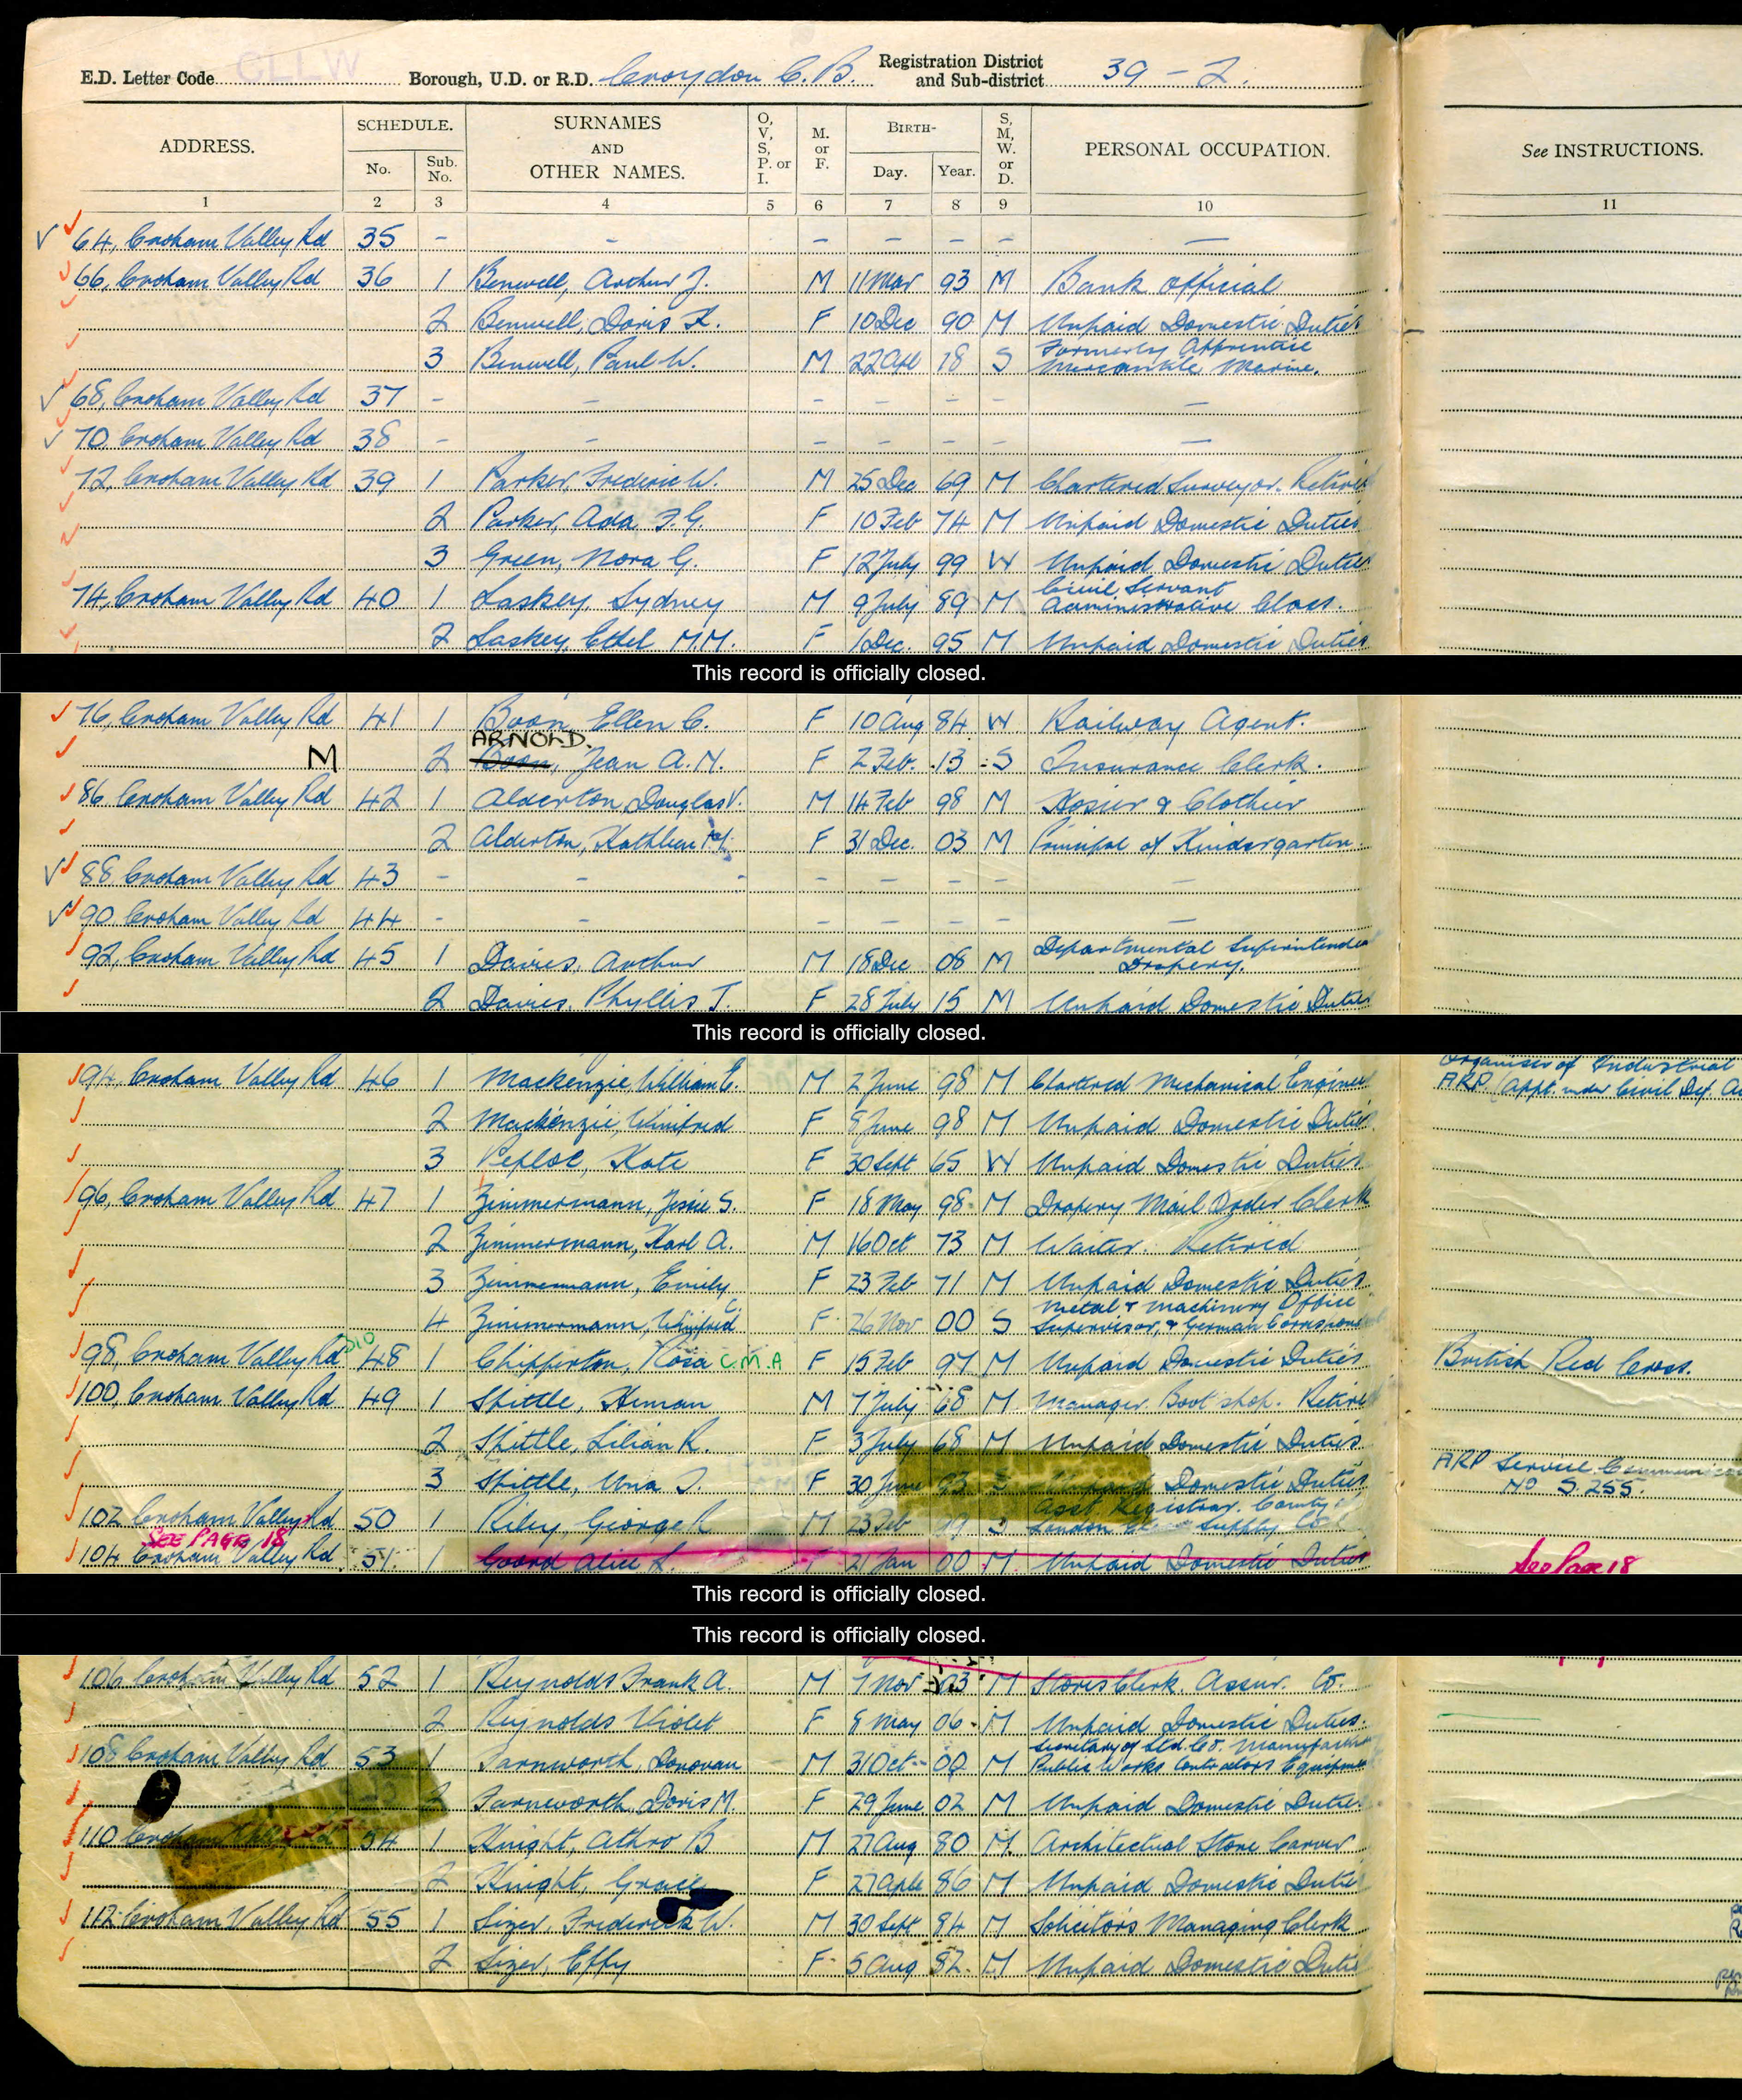 E.D. Letter Code CLLW Borough, U.D. or R.D. Croydon C.B. Registration District and Sub-district 39 - 2.
ADDRESS. SCHEDULE. No. Sub. No. SURNAMES AND OTHER NAMES. O, V, S, P. or I. M. or F. BIRTH- Day. Year. S, M, W. or D. PERSONAL OCCUPATION. See INSTRUCTIONS.
1 2 3 4 5 6 7 8 9 10 11
64, Croham Valley Rd 35 - - - - - - -
66, Croham Valley Rd 36 1 Benwell, Arthur J. M 11 Mar 93 M Bank official
2 Benwell, Doris K. F 10 Dec 90 M Unpaid Domestic Duties
3 Benwell, Paul W. M 22 Apl 18 S Formerly Apprentice Mercantile Marine.
68, Croham Valley Rd 37 - - - - - - -
70, Croham Valley Rd 38 - - - - - - -
72, Croham Valley Rd 39 1 Parker, Frederic W. M 25 Dec 69 M Chartered Surveyor. Retired
2 Parker, Ada F.G. F 10 Feb 74 M Unpaid Domestic Duties
3 Green, Nora G. F 12 July 99 W Unpaid Domestic Duties
74, Croham Valley Rd 40 1 Laskey, Sydney M 9 July 89 M Civil Servant Administrative Class.
2 Laskey, Ethel M.M. F 1 Dec. 95 M Unpaid Domestic Duties
This record is officially closed.
76, Croham Valley Rd 41 1 Boon, Ellen C. F 10 Aug 84 W Railway Agent.
ARNOLD.
M 2 Boon, Jean A.N. F 2 Feb. 13 S Insurance Clerk.
86 Croham Valley Rd 42 1 Alderton Douglas V. M 14 Feb 98 M Hosier & Clothier
2 Alderton, Kathleen M. F 31 Dec. 03 M Principal of Kindergarten.
88 Croham Valley Rd 43 - - - - - - -
90 Croham Valley Rd 44 - - - - - - -
92, Croham Valley Rd 45 1 Davies, Arthur M 18 Dec 08 M Departmental Superintendent Drapery.
2 Davies, Phyllis J. F 28 July 15 M Unpaid Domestic Duties
This record is officially closed.
94, Croham Valley Rd 46 1 Mackenzie, William E. M 2 June 98 M Chartered Mechanical Engineer Organiser of Industrial ARP. (Appt. under Civil Def. Ac
2 Mackenzie, Winifred F 8 June 98 M Unpaid Domestic Duties
3 Peploe, Kate F 30 Sept 65 W Unpaid Domestic Duties
96, Croham Valley Rd 47 1 Zimmermann, Jessie S. F 18 May 98 M Drapery Mail Order Clerk
2 Zimmermann, Karl A. M 16 Oct 73 M Waiter. Retired
3 Zimmermann, Emily F 23 Feb 71 M Unpaid Domestic Duties
4 Zimmermann, Winifred C. F 26 Nov 00 S Metal & Machinery Office Supervisor, & German Correspond
98, Croham Valley Rd 48 1 Chipperton, Rosa C.M.A F 15 Feb 97 M Unpaid Domestic Duties British Red Cross.
100, Croham Valley Rd 49 1 Shittle, Heman M 7 July 68 M Manager Boot shop. Retired
2 Shittle, Lilian R. F 3 July 68 M Unpaid Domestic Duties
3 Shittle, Una I. F 30 June 93 S Unpaid Domestic Duties ARP Service No S.255.
102 Croham Valley Rd 50 1 Riley, George R M 23 Feb S Asst Registrar. County of London Supply Co
SEE PAGE 18
104 Croham Valley Rd 51 1 Goord Alice L. F 21 Jan 00 M Unpaid Domestic Duties See Page 18
This record is officially closed.
This record is officially closed.
106 Croham Valley Rd 52 1 Reynolds Frank A. M 7 Nov 03 M Stores Clerk. Assur. Co.
2 Reynolds Violet F 8 May 06 M Unpaid Domestic Duties.
108 Croham Valley Rd 53 1 Farnworth, Donovan M 31 Oct 00 M Secretary of Ltd. Co. Manufacturing Public Works Contractors Equipment
2 Farneworth, Doris M. F 29 June 02 M Unpaid Domestic Duties
110 Croham Valley Rd 54 1 Knight, Athro B M 27 Aug 80 M. Architectual Stone Carver
2 Knight, Gracie F 27 Aple 86 M Unpaid Domestic Duties
112 Croham Valley Rd 55 1 Sizer, Frederick W. M 30 Sept 84 M Solicitors Managing Clerk
2 Sizer, Effy F 5 Aug 82 M Unpaid Domestic Duties